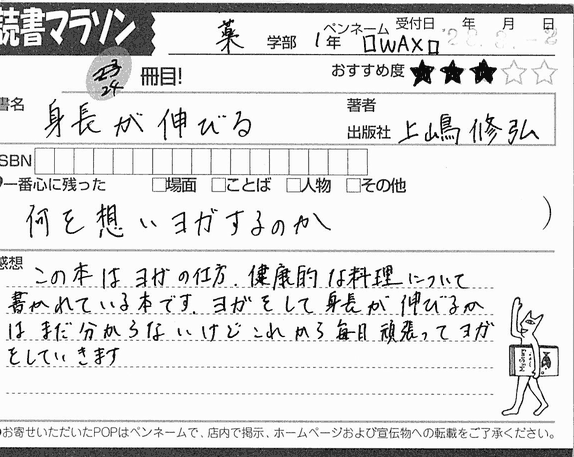 読書マラソン
薬 学部 1年 ペンネーム ロWAXロ 受付日 年 月 日
23
24 冊目! おすすめ度 ★★★☆☆
書名 身長が伸びる 著者 出版社 上嶋修弘
ISBN
一番心に残った □場面 □ことば □人物 □その他
何を想いヨガするのか )
感想
この本はヨガの仕方、健康的な料理について
書かれている本です。ヨガをして身長が伸びるか
はまだ分からないけどこれから毎日頑張ってヨガ
をしていきます
お寄せいただいたPOPはペンネームで、店内で掲示、ホームページおよび宣伝物への転載をご了承ください。